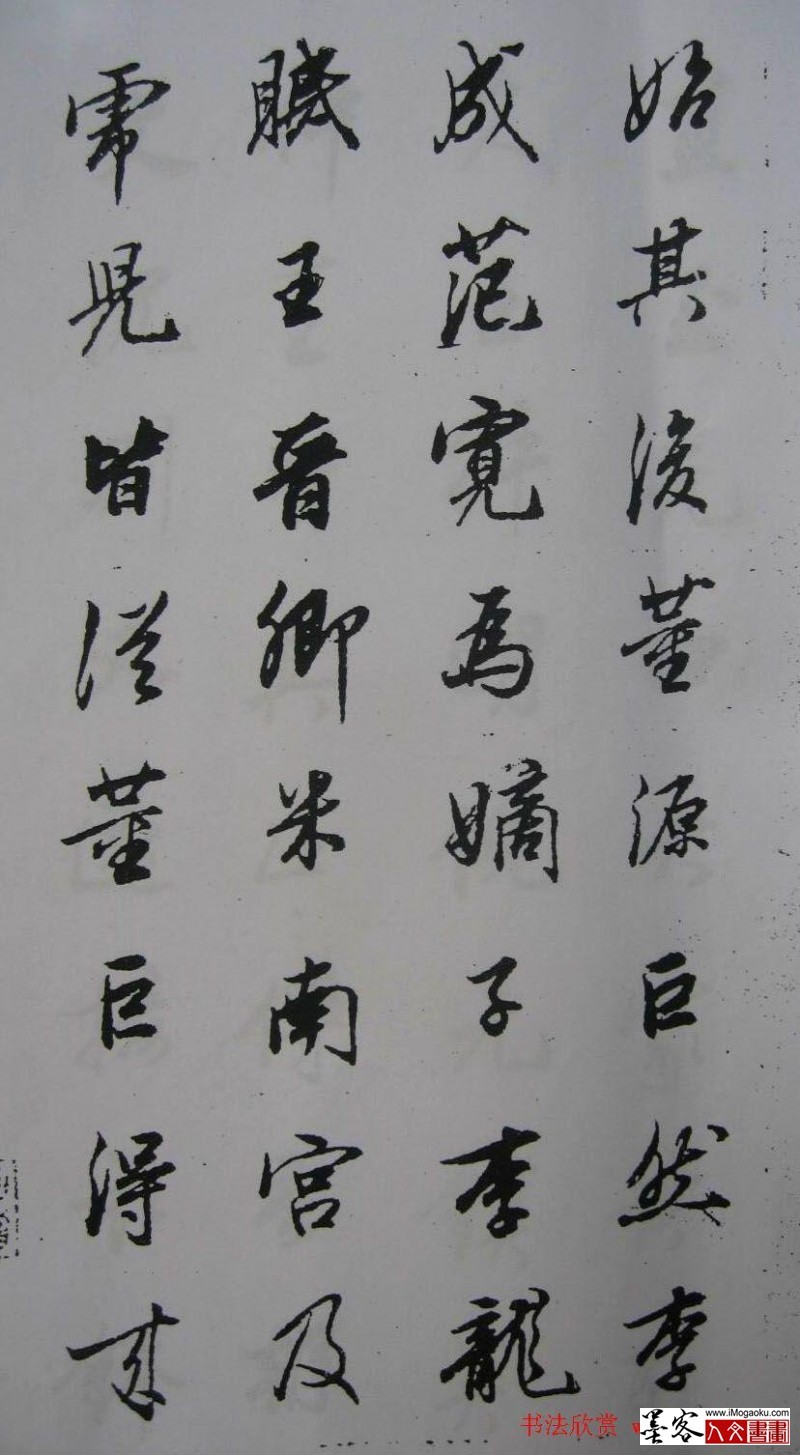 始其後董源巨然李
成范寬爲嫡子李龍
眠王晉卿米南宮及
虎兒皆從董巨得来
书法欣赏
www.iMogaoku.com
墨客人文書畫